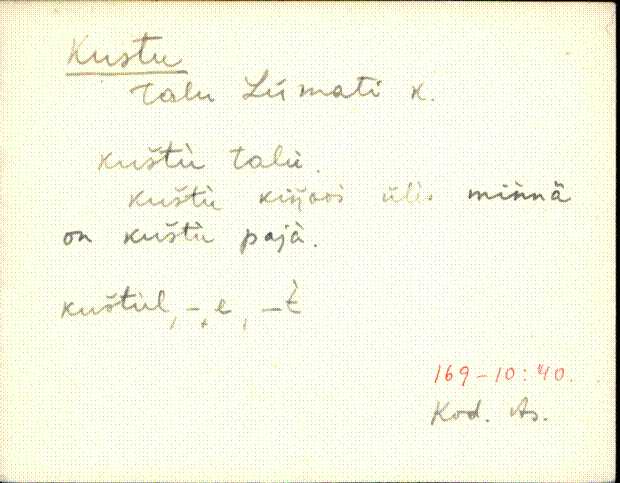 Kustu
talu Lümati k.
kuštù talù.
kuštù üli. minnä
on kuštù pajà.
kuštùl, -, e, -t̀
169-10:40.
Kod. As.